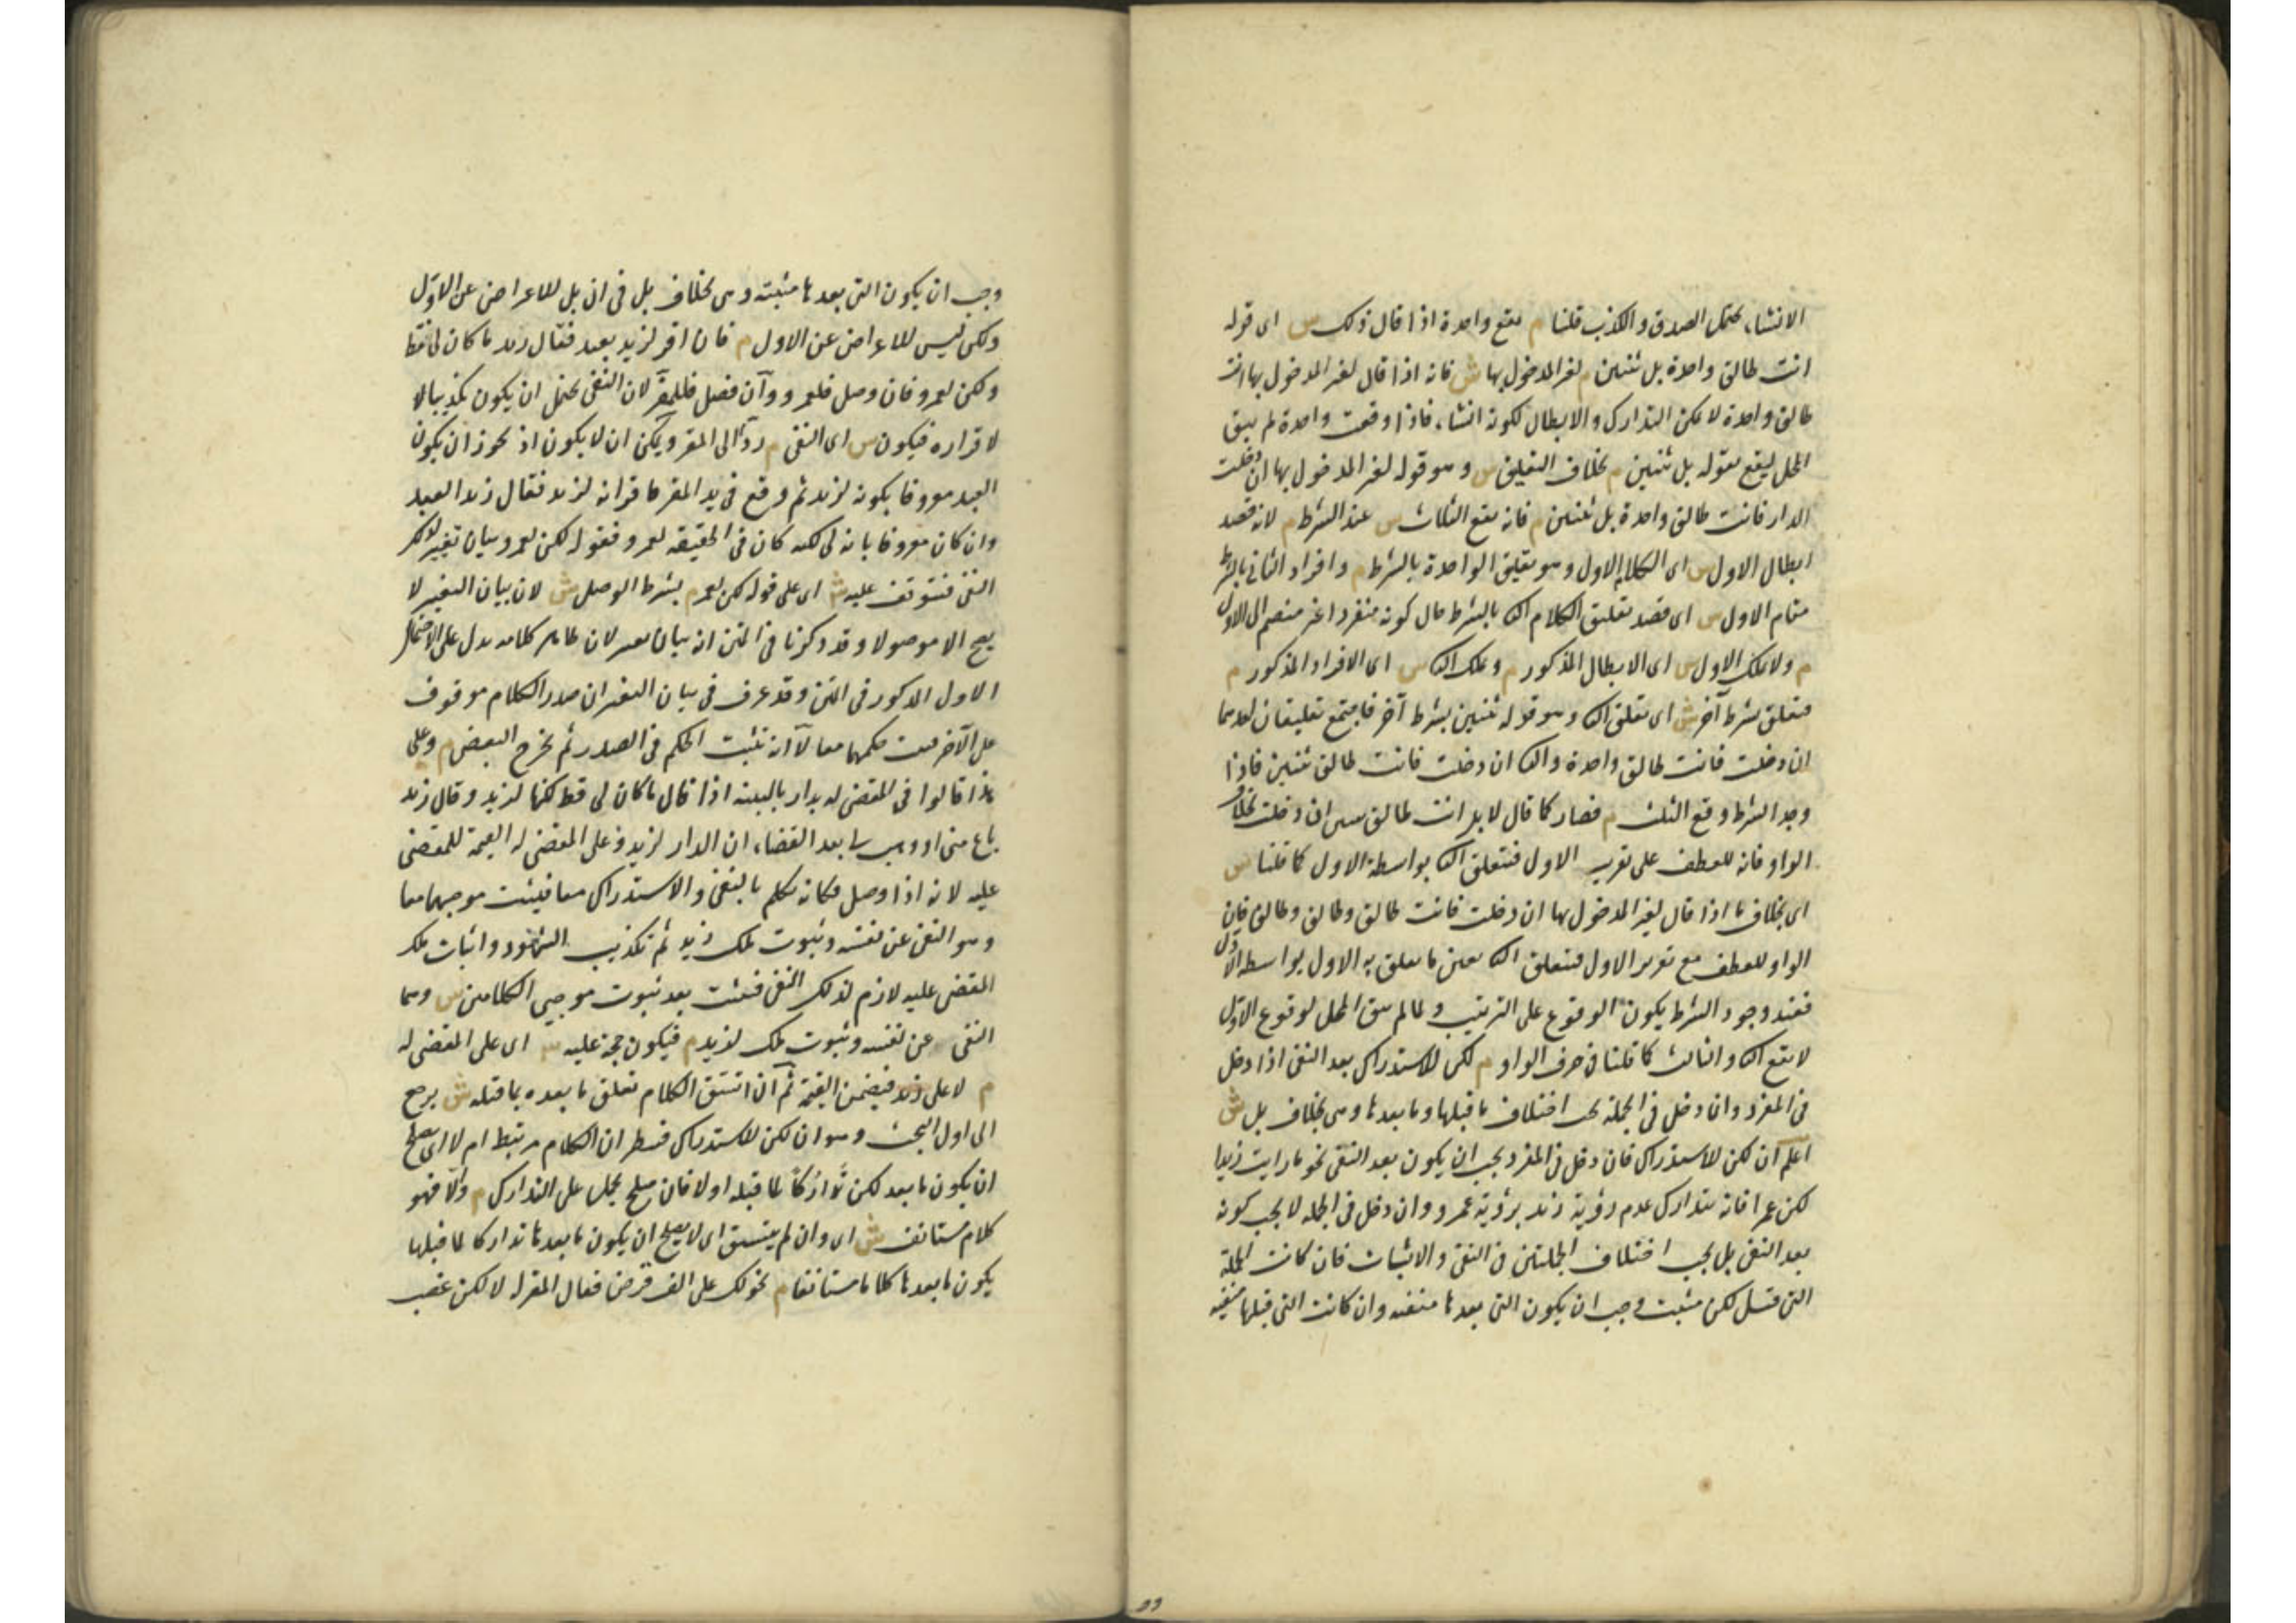 الانشاء يحتمل الصدق والكذب قلنا م يقع واحدة اذا قال ذلك س اى قوله
انت طالق واحدة بل ثنتين م لغير المدخول بها ش فانه اذا قال لغير المدخول بها انت
طالق واحدة لا يمكن التدارك والابطال لكونه انشاء فاذا وقعت واحدة لم يبق
المحل ليقع بقوله بل ثنتين م بخلاف التعليق س وهو قوله لغير المدخول بها ان دخلت
الدار فانت طالق واحدة بل ثنتين م فانه يقع الثلاث س عند الشرط م لانه قصد
ابطال الاول س اى الكلام الاول وهو تعليق الواحدة بالشرط م وافراد الثانى بالشرط
مقام الاول س اى قصد تعليق الكلام الثا بالشرط حال كونه منفردا غير منضم الى الاول
م ولا يملك الاول س اى الابطال المذكور م ويملك الثا س اى الافراد المذكور م
فيتعلق بشرط آخر ش اى يتعلق الثا وهو قوله ثنتين بشرط آخر فاجتمع تعليقان احدهما
ان دخلت فانت طالق واحدة والثا ان دخلت فانت طالق ثنتين فاذا
وجد الشرط وقع الثلث م فصار كما قال لا بل انت طالق ثنتين ان دخلت بخلاف
الواو فانه للعطف على تقرير الاول فيتعلق الثا بواسطة الاول كما قلنا س
اى بخلاف ما اذا قال لغير المدخول بها ان دخلت فانت طالق وطالق وطالق فان
الواو للعطف مع تقرير الاول فيتعلق الثا بعين ما تعلق به الاول بواسطة الاول
فعند وجود الشرط يكون الوقوع على الترتيب ولما لم يبق المحل لوقوع الاول
لا يقع الثا والثالث كما قلنا فى حرف الواو م لكن للاستدراك بعد النفى اذا دخل
فى المفرد وان دخل فى الجملة يجب اختلاف ما قبلها وما بعدها وهى بخلاف بل ش
اعلم ان لكن للاستدراك فان دخل فى المفرد يجب ان يكون بعد النفى نحو ما رايت زيدا
لكن عمرا فانه يتدارك عدم رؤية زيد برؤية عمرو وان دخل فى الجملة لا يجب كونه
بعد النفى بل يجب اختلاف الجملتين فى النفى والاثبات فان كانت الجملة
التى قبل لكن مثبت وجب ان يكون التى بعدها منفية وان كانت التى قبلها منفية
وجب ان يكون التى بعدها مثبتة وهى بخلاف بل فى ان بل للاعراض عن الاول
ولكن ليس للاعراض عن الاول م فان اقر لزيد بعبد فقال زيد ما كان لى قط
ولكن لعمرو فان وصل فلعمرو وان فصل فللمقر لان النفى يحتمل ان يكون تكذيبا لا
لاقراره فيكون س اى النفى م ردا الى المقر ويمكن ان لا يكون اذ يجوز ان يكون
العبد معروفا بكونه لزيد ثم وقع فى يد المقر فاقر انه لزيد فقال زيد العبد
وان كان معروفا بانه لى لكنه كان فى الحقيقة لعمرو فقوله لكن لعمرو بيان تغيير لذلك
النفى فيتوقف عليه ش اى على قوله لكن لعمرو م بشرط الوصل ش لان بيان التغيير لا
يصح الا موصولا وقد ذكرنا فى المتن انه بيان تغيير لان ظاهر كلامه يدل على الاحتمال
الاول المذكور فى المتن وقد عرف فى بيان التغيير ان صدر الكلام موقوف
على الآخر فيثبت حكمهما معا لا انه يثبت الحكم فى الصدر ثم يخرج البعض م وعلى
هذا قالوا فى المقضى له بدار بالبينة اذا قال ما كان لى قط لكنها لزيد وقال زيد
باع منى او وهب لى بعد القضاء ان الدار لزيد وعلى المقضى له القيمة للمقضى
عليه لانه اذا وصل فكانه تكلم بالنفى والاستدراك معا فيثبت موجبهما معا
وهو النفى عن نفسه وثبوت ملك زيد ثم تكذيب الشهود واثبات ملك
المقضى عليه لازم لذلك النفى فيثبت بعد ثبوت موجبى الكلامين س وهما
النفى عن نفسه وثبوت ملك لزيد م فيكون حجة عليه س اى على المقضى له
م لا على زيد فيضمن القيمة ثم ان اتسق الكلام تعلق ما بعده بما قبله ش يرجع
الى اول البحث وهو ان لكن للاستدراك فينظر ان الكلام مرتبط ام لا اى يصلح
ان يكون ما بعد لكن تداركا لما قبله او لا فان صلح يحمل على التدارك م والا فهو
كلام مستانف ش اى وان لم يتسق اى لا يصلح ان يكون ما بعدها تداركا لما قبلها
يكون ما بعدها كلاما مستانفا م نحو لك على الف قرض فقال المقر له لا لكن غصب